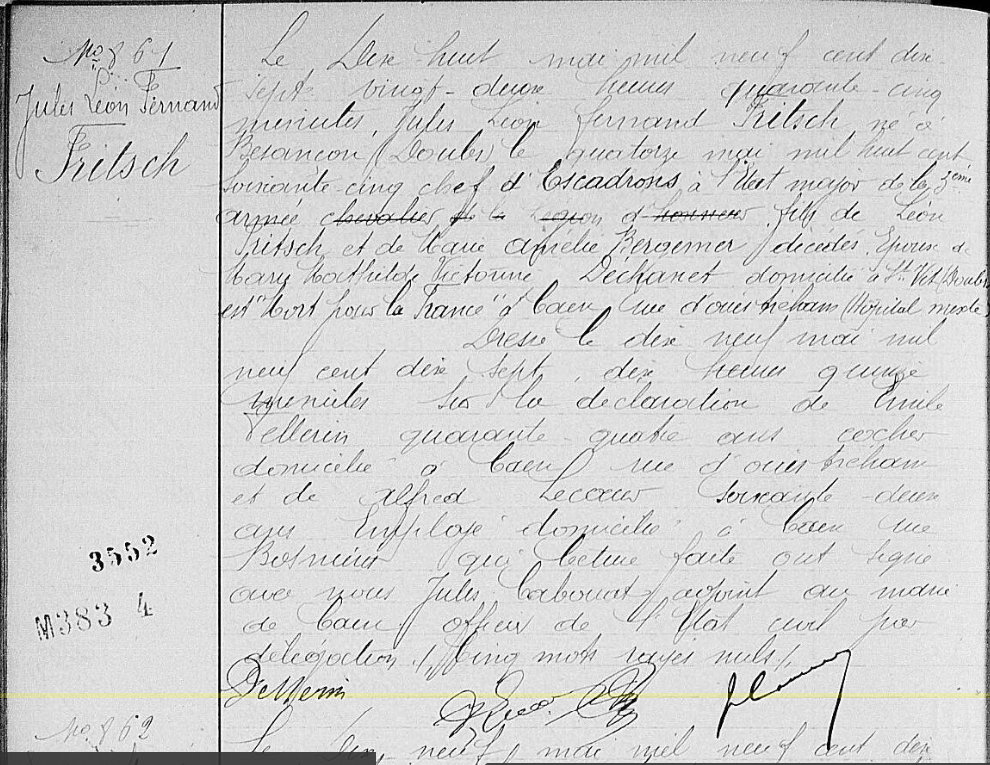 No. 861
Jules Léon Fernand
Fritsch
Le Dix huit mai mil neuf cent dix
sept vingt-deux heures quarante-cinq
minutes, Jules Léon Fernand Fritsch né à
Besançon (Doubs) le quatorze mai mil huit cent
soixante cinq chef d'Escadrons à l'Etat major de la 3eme
armée chevalier de la Légion d'honneur fils de Léon
Fritsch et de Marie Amélie Bergemer décédés, Epoux de
Mary Mathilde Victorine Dechanet domicilié à St Vit (Doubs)
est "Mort pour la France" à Caen rue d'ouistreham (Hôpital mixte)
Dressé le dix neuf mai mil
neuf cent dix sept, dix heures quinze
minutes sur la déclaration de Emile
Pellerin quarante-quatre ans cocher
domicilié à Caen rue d'ouistreham
et de Alfred Lecoeur soixante deux
ans Employé domicilié à Caen rue
Bosnières qui lecture faite ont signé
avec nous Jules Cabouat adjoint au maire
de Caen officier de l'Etat civil par
délégation ./. Cinq mots rayés nuls ./.
Pellerin
3552
M383 4
No. 862
Le Dix neuf mai mil neuf cent dix